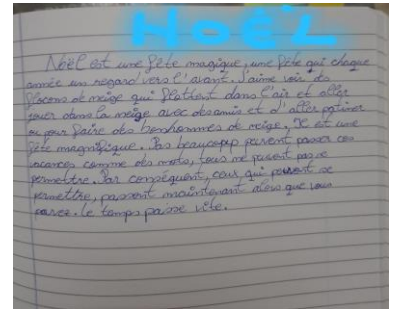 NOËL
Noël est une fête magique, une fête qui chaque
année un regard vers l'avant. J'aime voir des
flocons de neige qui flottent dans l'air et aller
jouer dans la neige avec des amis et d'aller patiner
ou pour faire des bonhommes de neige, C'est une
fête magnifique. Pas beaucoup peuvent passer ces
vacances comme des mots, tous ne peuvent pas se
permettre. Par conséquent, ceux qui peuvent se
permettre, passent maintenant alors que vous
pouvez. le temps passe vite.